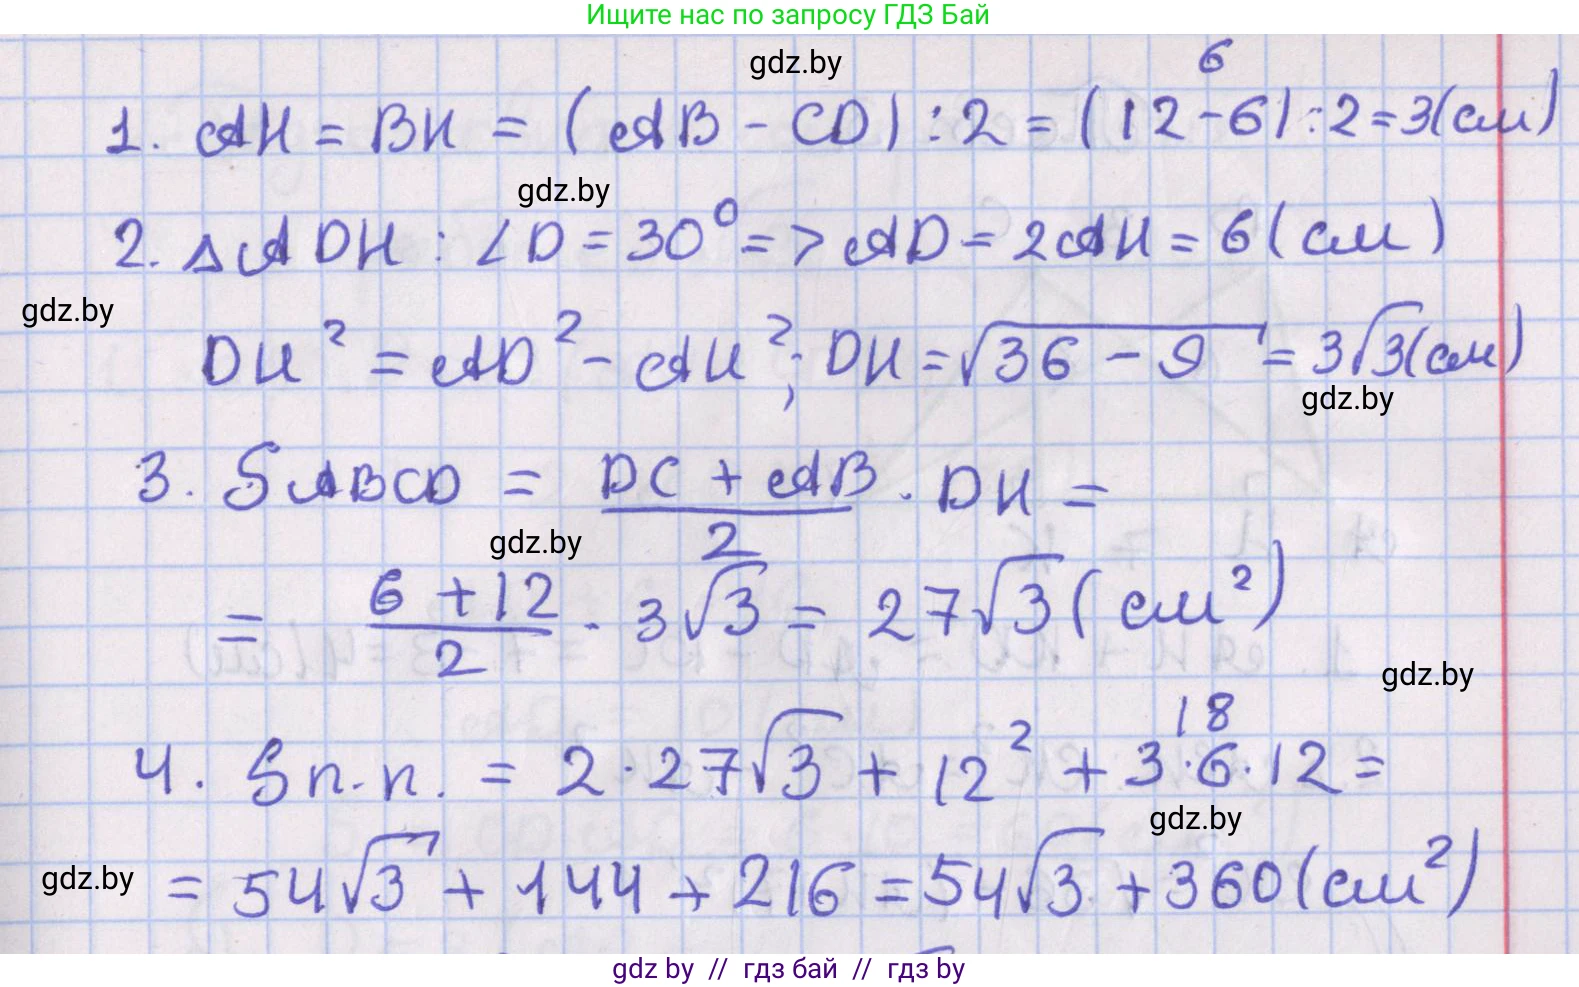 Ищите нас по запросу ГДЗ Бай
gdz.by
6
1. AH = BK = (AB - CD) : 2 = (12-6) : 2 = 3(см)
gdz.by
2. △ADH : ∠D = 30⁰ => AD = 2AH = 6(см)
gdz.by
DH² = AD² - AH²; DH = √36 - 9 = 3√3(см)
gdz.by
3. SABCD = (DC + AB)/2 · DH =
gdz.by
= (6 + 12)/2 · 3√3 = 27√3(см²)
gdz.by
18
4. Sп.п. = 2·27√3 + 12² + 3·6·12 =
gdz.by
gdz.by
= 54√3 + 144 + 216 = 54√3 + 360(см²)
gdz by // гдз бай // гдз by